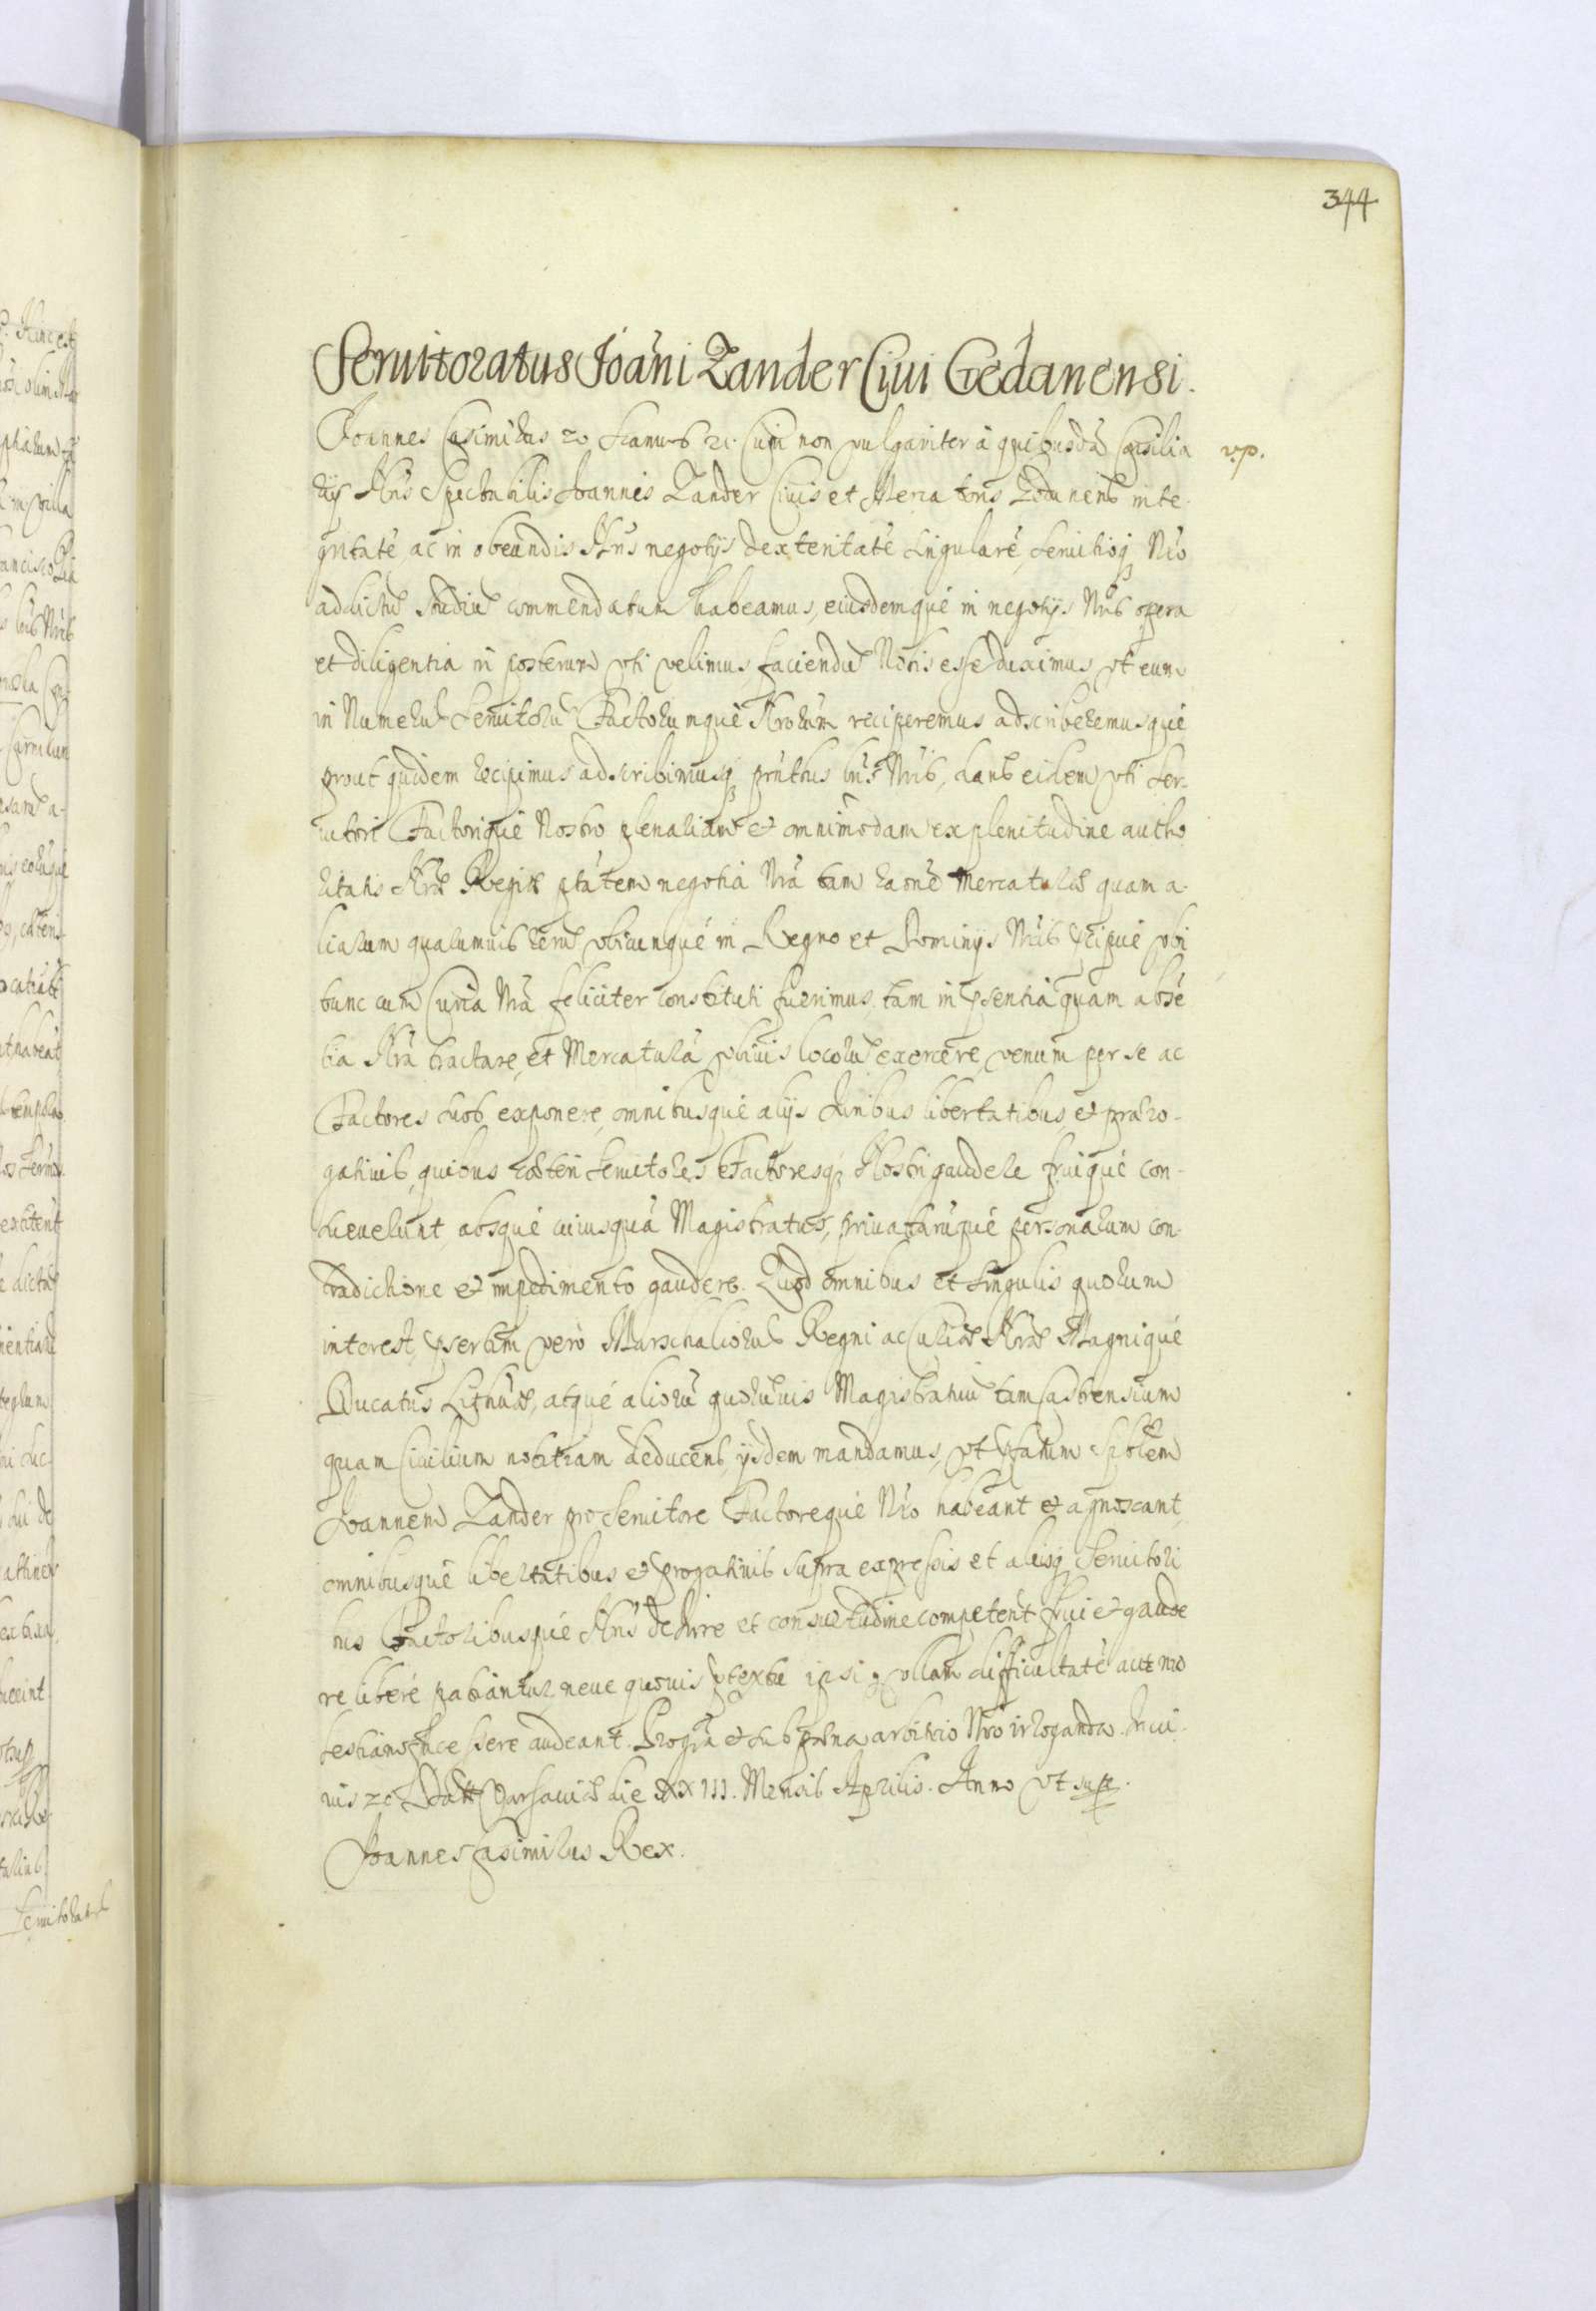 344
Seruitoratus Joāni Zander Ciui Gedanensi.
Joannes Casimirus etc. Cum non vulgariter à quibusdā Consilia
v.p.
rijs Nr̃is Spectabilis Joannis Zander Ciuis et Mercatoris inte-
gritatē, ac in obeundis Nr̃is negotijs dexteritatē singularē, seruitioq Nr̃o
addictū studiū commendatum habeamus, eiusdemquè in negotijs Nr̃is opera
et diligentia in posterum vti velimus faciendū Nobis esse duximus vt eum
in Numerū Seruitorū Factorumquè Nr̃orum reciperemus adscriberemusquè
prout quidem recipimus adscribimusq pñtibus lr̃is Nr̃is, dantes eidem vti Ser-
uitori Factoriquè Nostro plenariam et omnimodam ex plenitudine autho
ritatis Nr̃æ Regiæ ptātem negotia Nr̃a tam raõne Mercaturæ quam a-
liarum quarumuis rerū vbicunquè in Regno et Dominijs Nr̃is p̃cipuè vbi
tunc cum Curia Nr̃a feliciter constituti fuerimus, tam in p̃sentia quam absē
tia Nr̃a tractare, et Mercaturā vbiuis locorū exercere, venum per se ac
Factores suos exponere, omnibusquè alijs Juribus libertatibus et præro-
gatiuis, quibus cæteri Seruitores Factoresq Nostri gaudere fruiquè con-
sueuerunt, absquè cuiusquā Magistratus, priuatarūquè personarum con-
tradictione et impedimento gaudere. Quod omnibus et singulis quorum
interest, p̃sertim verò Marschalcorū Regni ac Curiæ Nr̃æ Magniquè
Ducatus Lithuæ, atquè aliorū quorūuis Magistratuū tam Castrensium
quam Ciuilium notitiam deducens, ijsdem mandamus, vt p̃fatum Sp̃blem
Joannem Zander pro Seruitore Factorequè Nr̃o habeant et agnoscant,
omnibusquè libertatibus et p̃rogatiuis supra expressis et alijsq Seruitori
bus Factoribusquè Nr̃is de Jure et consuetudine competent frui et gaude
re liberè patiantur, neue quouis p̃textu ipsi vllam difficultatē aut mo
lestiam facessere audeant. Pro gr̃a et sub pœna arbitrio Nr̃o irroganda. In cui
us etc. Datt Varsauiæ die XXIII. Mensis Aprilis. Anno vt supr.
Joannes Casimirus Rex.